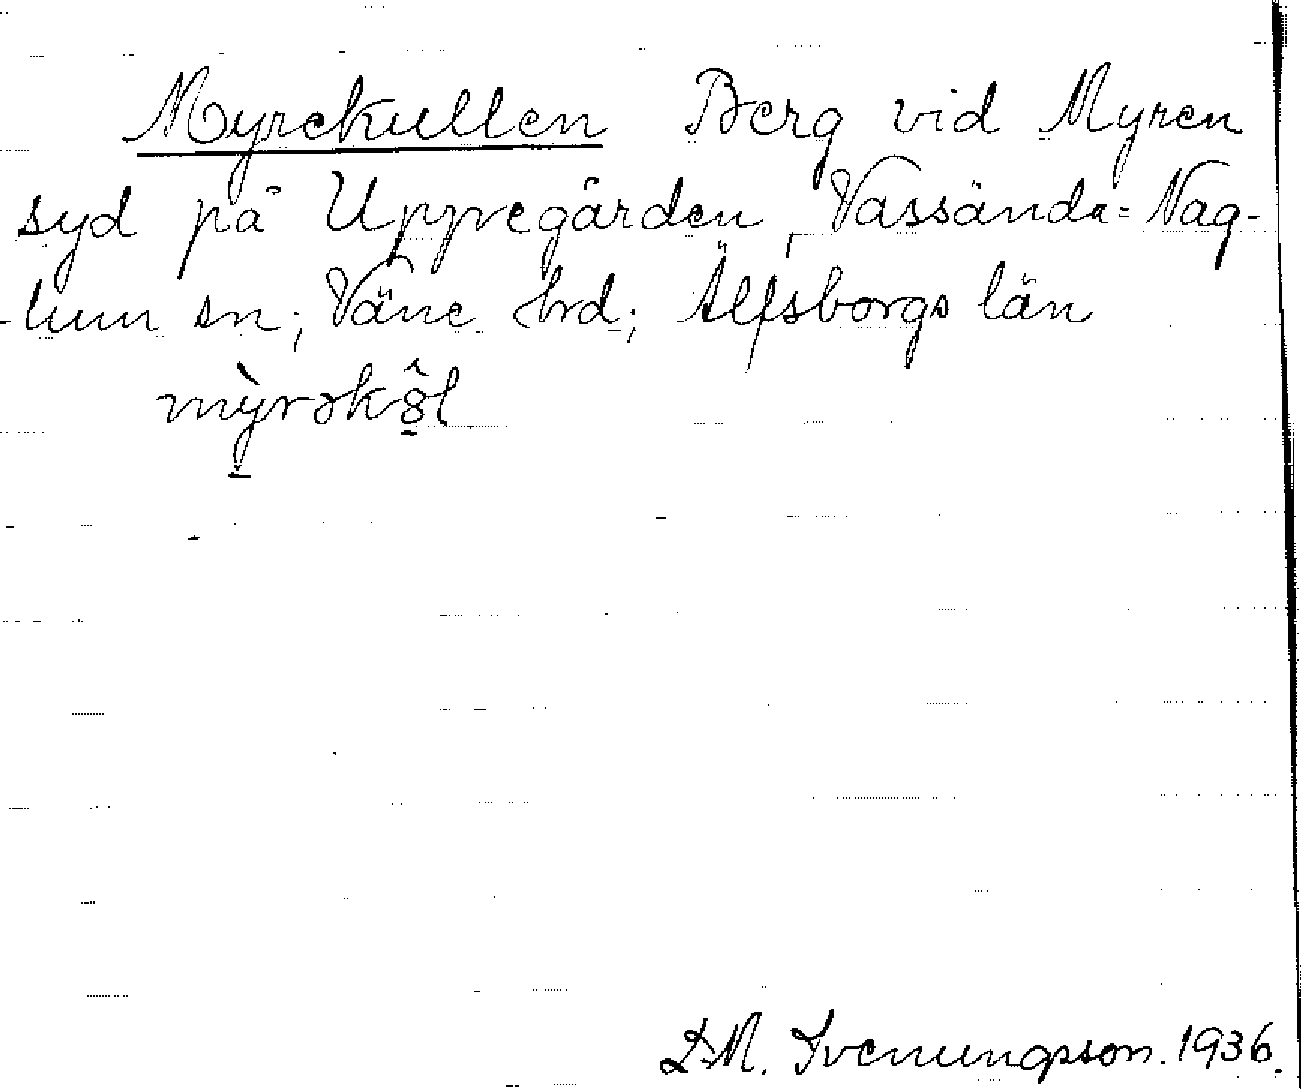 Myrekullen Berg vid Myren
syd på Uppvegården, Vassända=Nag-
-lum sn; Väne hrd; Älfsborgs län
mỳrək8̂l
D.M. Svenungsson. 1936.